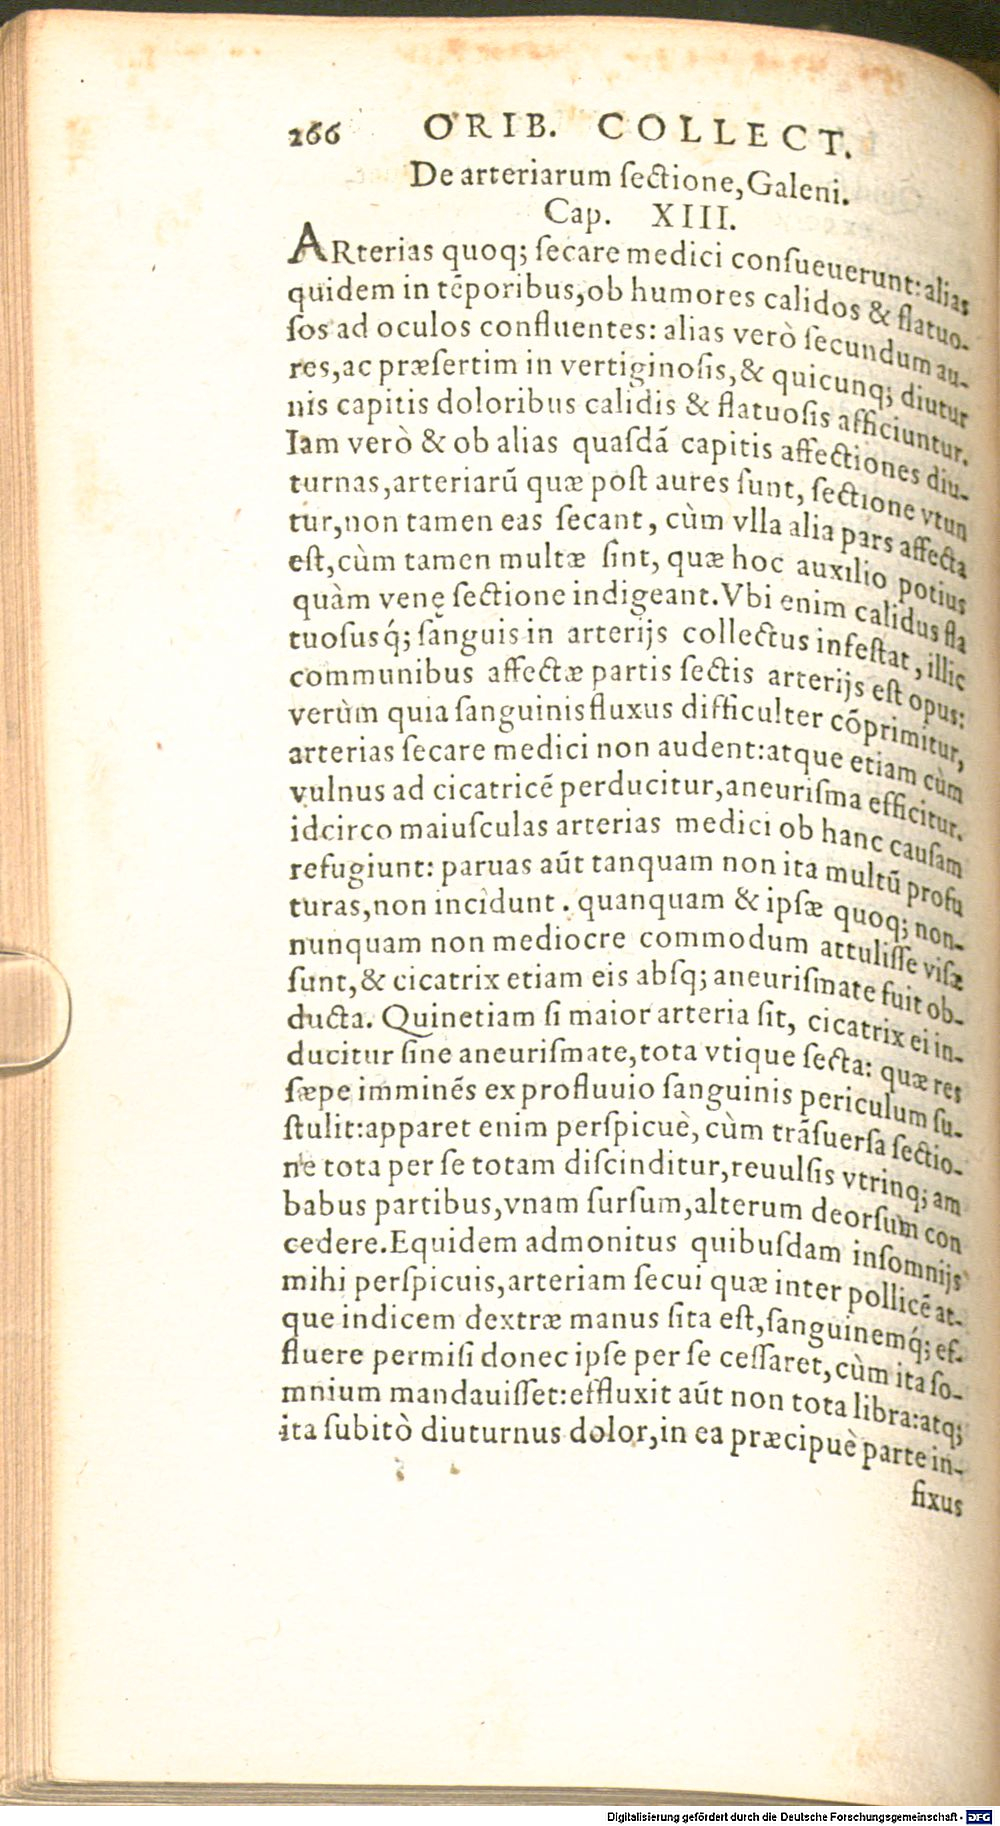 266 ORIB. COLLECT.
De arteriarum ſectione, Galeni.
Cap. XIII.
ARterias quoq; ſecare medici conſueuerunt: alias
quidem in tẽporibus, ob humores calidos & flatuo-
ſos ad oculos confluentes: alias verò ſecundum au-
res, ac præſertim in vertiginoſis, & quicunq; diutur
nis capitis doloribus calidis & flatuoſis afficiuntur.
Iam verò & ob alias quaſdã capitis affectiones diu-
turnas, arteriarũ quæ poſt aures ſunt, ſectione vtun
tur, non tamen eas ſecant, cùm vlla alia pars affecta
eſt, cùm tamen multæ ſint, quæ hoc auxilio potius
quàm venę ſectione indigeant. Vbi enim calidus fla
tuoſusq́; ſanguis in arterijs collectus infeſtat, illic
communibus affectæ partis ſectis arterijs eſt opus:
verùm quia ſanguinis fluxus difficulter cõprimitur,
arterias ſecare medici non audent: atque etiam cùm
vulnus ad cicatricẽ perducitur, aneuriſma efficitur.
idcirco maiuſculas arterias medici ob hanc cauſam
refugiunt: paruas aũt tanquam non ita multũ profu
turas, non incidunt. quanquam & ipſæ quoq; non-
nunquam non mediocre commodum attuliſſe viſæ
ſunt, & cicatrix etiam eis abſq; aneuriſmate fuit ob-
ducta. Quinetiam ſi maior arteria ſit, cicatrix ei in-
ducitur ſine aneuriſmate, tota vtique ſecta: quæ res
ſæpe imminẽs ex profluuio ſanguinis periculum ſu-
ſtulit: apparet enim perſpicuè, cùm trãſuerſa ſectio-
ne tota per ſe totam diſcinditur, reuulſis vtrinq; am
babus partibus, vnam ſurſum, alterum deorſum con
cedere. Equidem admonitus quibuſdam inſomnijs
mihi perſpicuis, arteriam ſecui quæ inter pollicẽ at-
que indicem dextræ manus ſita eſt, ſanguinemq́; ef-
fluere permiſi donec ipſe per ſe ceſſaret, cùm ita ſo-
mnium mandauiſſet: effluxit aũt non tota libra: atq;
ita ſubitò diuturnus dolor, in ea præcipuè parte in-
fixus
Digitalisierung gefördert durch die Deutsche Forschungsgemeinschaft - DFG